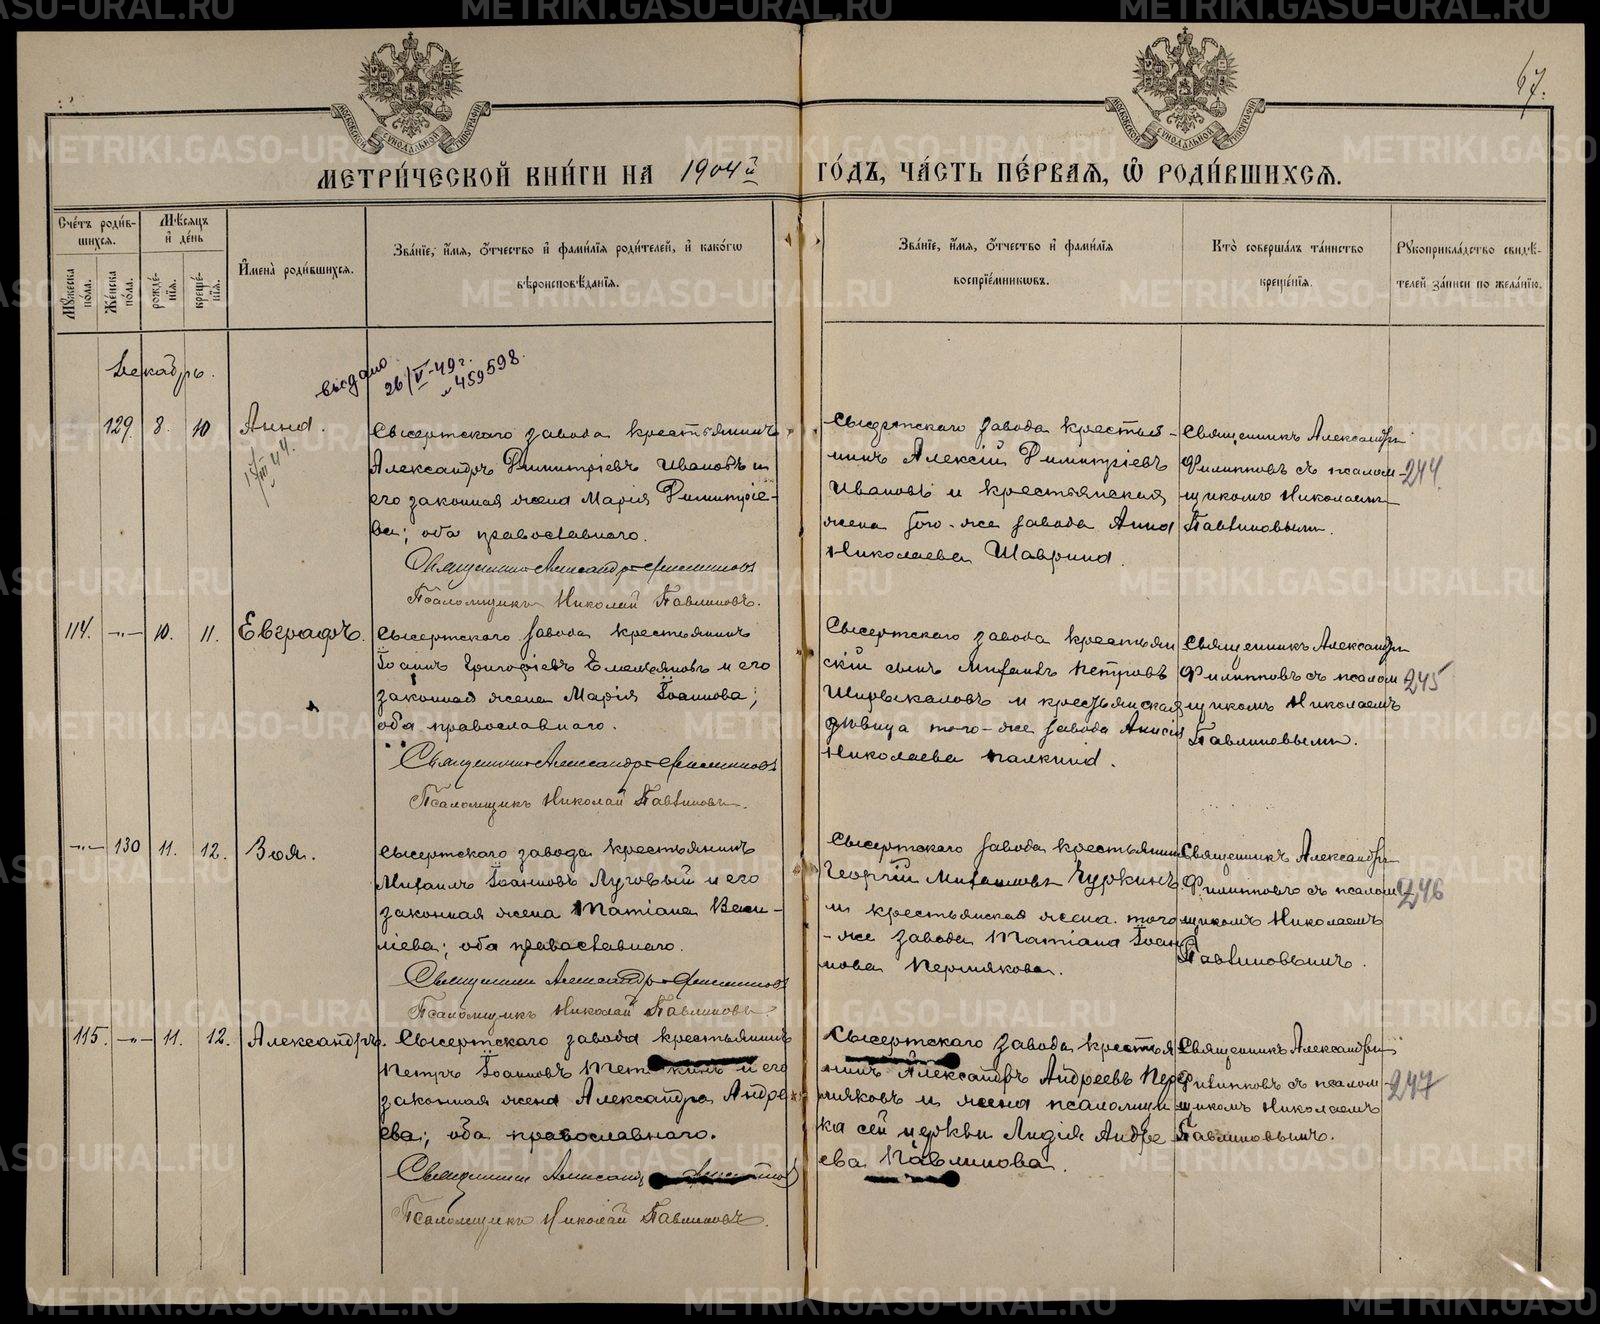 67.
МЕТРИ́ЧЕСКОЙ КНИ́ГИ НА 1904й ГО́ДЪ, ЧА́СТЬ ПЕ́РВАЯ, Ѡ РОДИ́ВШИХСЯ.
Сче́тъ роди́в-
шихся.
Му́жеска
по́ла.
Же́нска
по́ла.
Мѣ́сяцъ
и҆ де́нь
рожде́-
нїя.
креще́-
нїя.
И҆мена̀ роди́вшихся.
Зва́нїе, и҆́мя, ѻ҆́тчество и҆ фами́лїя роди́телей, и҆ како́гѡ
вѣроисповѣ́данїя.
Зва́нїе, и҆́мя, ѻ҆́тчество и҆ фами́лїя
воспрїе́мникѡвъ.
Кто̀ соверша́лъ та́инство
креще́нїя.
Рꙋкоприкла́дство свидѣ́-
телей за́писи по жела́нїю.
Декабрь.
выдано
26/V-49 г.
№ 459598.
129. 8. 10 Анна.
Сысертскаго завода крестьянинъ
Александръ Димитріевъ Ивановъ и
его законная жена Марія Димитріе-
ва; оба православнаго.
Священникъ Александръ Филипповъ
Псаломщикъ Николай Павлиновъ.
Сысертскаго завода крестья-
нинъ Алексій Димитріевъ
Ивановъ и крестьянская
жена того-же завода Анна
Николаева Шаврина.
Священникъ Александръ
Филипповъ съ псалом-
щикомъ Николаемъ
Павлиновымъ.
244.
114. -"- 10. 11. Евграфъ.
Сысертскаго завода крестьянинъ
Іоаннъ Григоріевъ Емельяновъ и его
законная жена Марія Іоаннова;
оба православнаго.
Священникъ Александръ Филипповъ
Псаломщикъ Николай Павлиновъ.
Сысертскаго завода крестьян
скій сынъ Михаилъ Петровъ
Ширыкаловъ и крестьянская
дѣвица того-же завода Анисія
Николаева Палкина.
Священникъ Александръ
Филипповъ съ псалом
щикомъ Николаемъ
Павлиновымъ.
245
-"- 130 11. 12. Зоя.
Сысертскаго завода крестьянинъ
Михаилъ Іоанновъ Луговый и его
законная жена Татіана Васи-
ліева; оба православнаго.
Священникъ Александръ Филипповъ
Псаломщикъ Николай Павлиновъ.
Сысертскаго завода крестьянинъ
Георгій Михаиловъ Чуркинъ
и крестьянская жена того
-же завода Татіана Іоан
нова Пермякова.
Священникъ Александръ
Филипповъ съ псалом-
щикомъ Николаемъ
Павлиновымъ.
246
115. -"- 11. 12. Александръ.
Сысертскаго завода крестьянинъ
Петръ Іоанновъ и его
законная жена Александра Андре
ева; оба православнаго.
Священникъ Александръ Филипповъ
Псаломщикъ Николай Павлиновъ.
Сысертскаго завода крестья
нинъ Александръ Андреевъ Пер
мяковъ и жена псаломщи
ка сей церкви Лидія Андре
ева Павлинова.
Священникъ Александръ
Филипповъ съ псалом-
щикомъ Николаемъ
Павлиновымъ.
247
METRIKI.GASO-URAL.RU